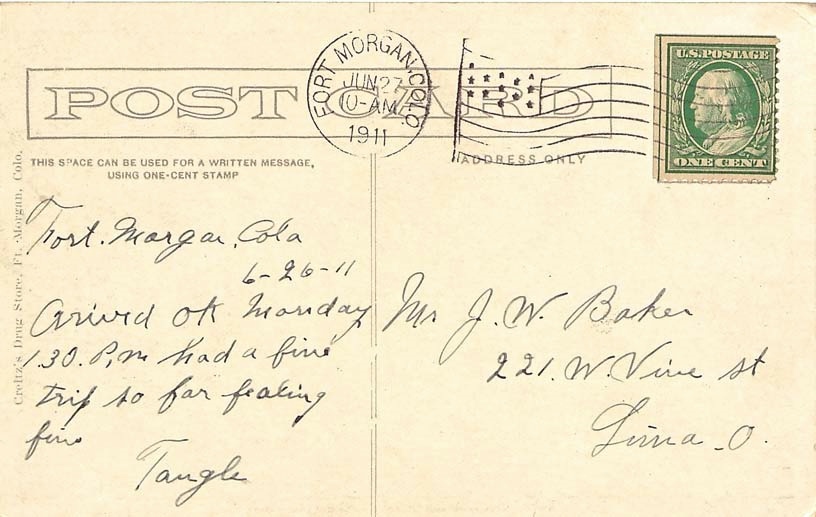 POST CARD
FORT MORGAN, COLO.
JUN 27
10-AM
1911
U.S. POSTAGE
ONE CENT
THIS SPACE CAN BE USED FOR A WRITTEN MESSAGE,
USING ONE-CENT STAMP
ADDRESS ONLY
Creltz's Drug Store, Ft. Morgan, Colo.
Fort. Morgan, Colo
6-26-11
Arrived OK Monday
1.30. P.m had a fine
trip so far fealing
fine
Tangle
Mr J. W. Baker
221. W. Vine st
Lima - O.